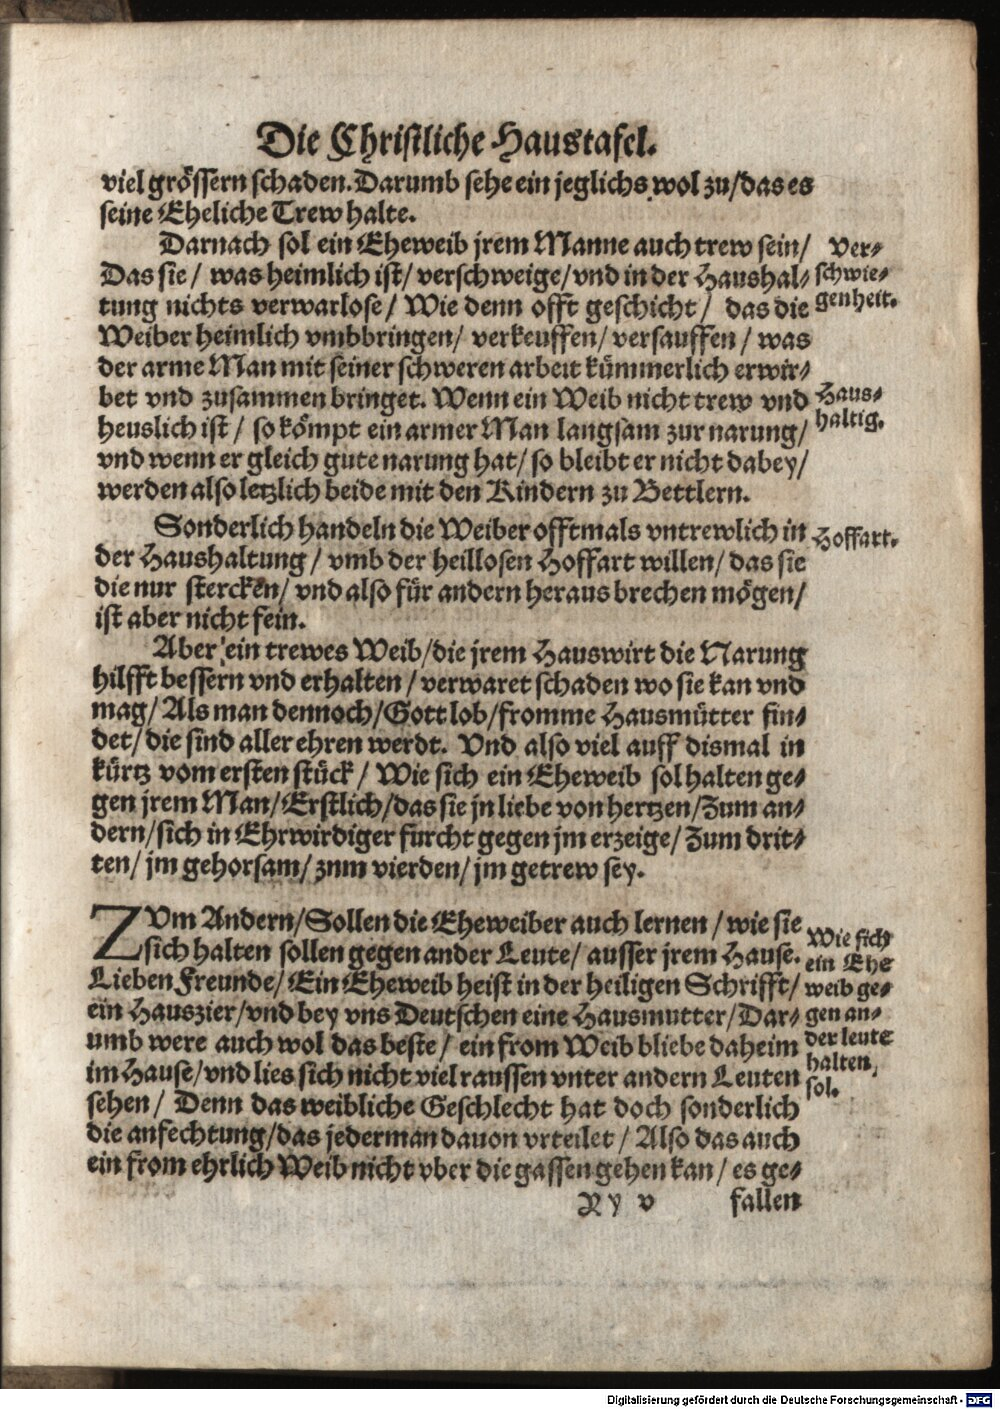 Die Christliche Haustafel.
viel grössern schaden. Darumb sehe ein jeglichs wol zu/ das es
seine Eheliche Trew halte.
Darnach sol ein Eheweib jrem Manne auch trew sein/
Das sie/ was heimlich ist/ verschweige/ vnd in der Haushal-
tung nichts verwarlose/ Wie denn offt geschicht/ das die
Weiber heimlich vmbbringen/ verkeuffen/ versauffen/ was
der arme Man mit seiner schweren arbeit kümmerlich erwir-
bet vnd zusammen bringet. Wenn ein Weib nicht trew vnd
heuslich ist/ so kömpt ein armer Man langsam zur narung/
vnd wenn er gleich gute narung hat/ so bleibt er nicht dabey/
werden also letzlich beide mit den Kindern zu Bettlern.
Ver-
schwie-
genheit.
Haus-
haltig.
Sonderlich handeln die Weiber offtmals vntrewlich in
der Haushaltung/ vmb der heillosen Hoffart willen/ das sie
die nur stercken/ vnd also für andern heraus brechen mögen/
ist aber nicht fein.
Hoffart.
Aber ein trewes Weib/ die jrem Hauswirt die Narung
hilfft bessern vnd erhalten/ verwaret schaden wo sie kan vnd
mag/ Als man dennoch/ Gott lob/ fromme Hausmütter fin-
det/ die sind aller ehren werdt. Vnd also viel auff dismal in
kürtz vom ersten stück/ Wie sich ein Eheweib sol halten ge-
gen jrem Man/ Erstlich/ das sie jn liebe von hertzen/ Zum an-
dern/ sich in Ehrwirdiger furcht gegen jm erzeige/ Zum drit-
ten/ jm gehorsam/ znm vierden/ jm getrew sey.
ZVm Andern/ Sollen die Eheweiber auch lernen/ wie sie
sich halten sollen gegen ander Leute/ ausser jrem Hause.
Lieben Freunde/ Ein Eheweib heist in der heiligen Schrifft/
ein Hauszier/ vnd bey vns Deutschen eine Hausmutter/ Dar-
umb were auch wol das beste/ ein from Weib bliebe daheim
im Hause/ vnd lies sich nicht viel raussen vnter andern Leuten
sehen/ Denn das weibliche Geschlecht hat doch sonderlich
die anfechtung/ das jederman dauon vrteilet/ Also das auch
ein from ehrlich Weib nicht vber die gassen gehen kan/ es ge-
Wie sich
ein Ehe
weib ge-
gen an-
der leute
halten
sol.
Xy v
fallen
Digitalisierung gefördert durch die Deutsche Forschungsgemeinschaft - DFG